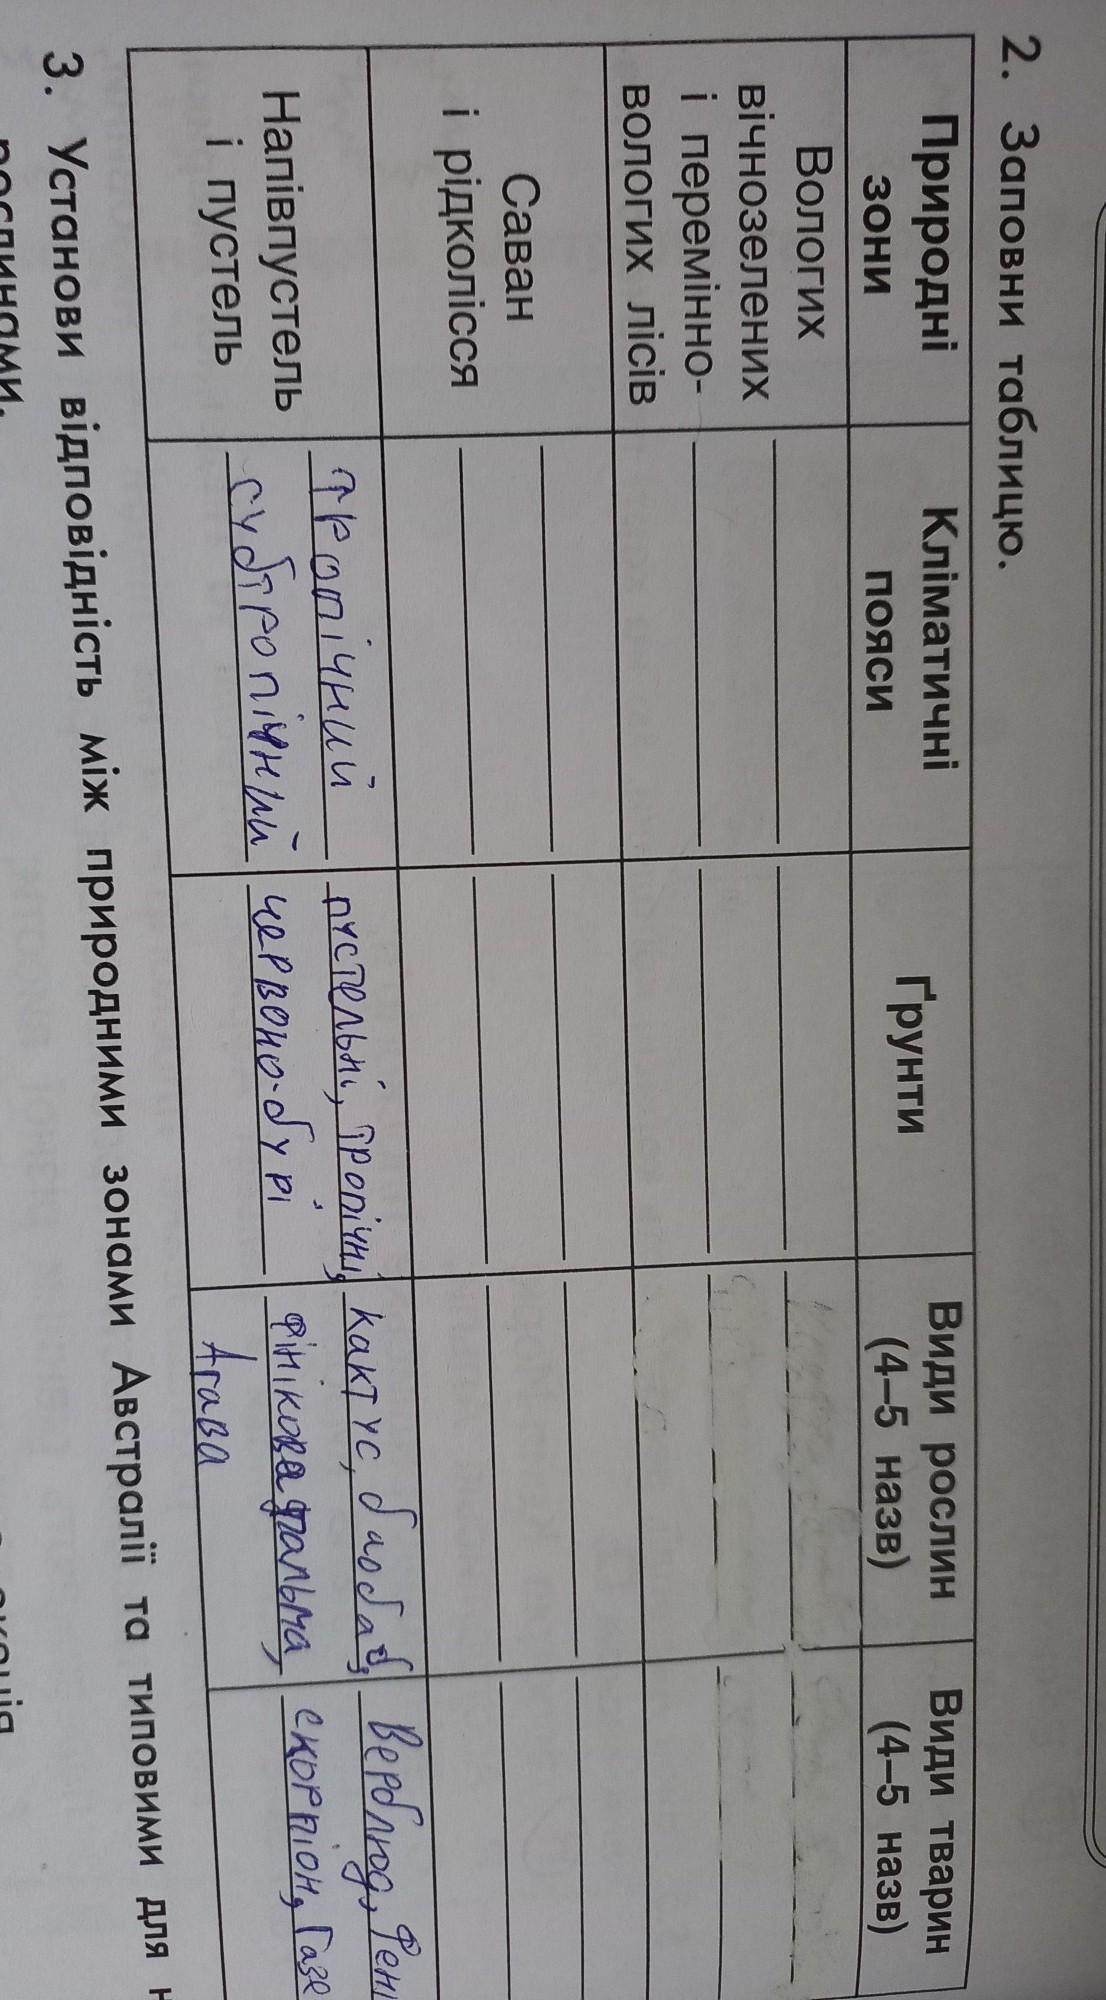 2. Заповни таблицю.
Природні
зони
Кліматичні
пояси
Ґрунти
Види рослин
(4–5 назв)
Види тварин
(4–5 назв)
Вологих
вічнозелених
і перемінно-
вологих лісів
Саван
і рідколісся
Напівпустель
і пустель
тропічний
субтропічний
пустельні, тропічні,
червоно-бурі
кактус, баобаб,
фінікова пальма,
Агава
Верблюд, Фен
скорпіон, Газе
3. Установи відповідність між природними зонами Австралії та типовими для н
рослинами.